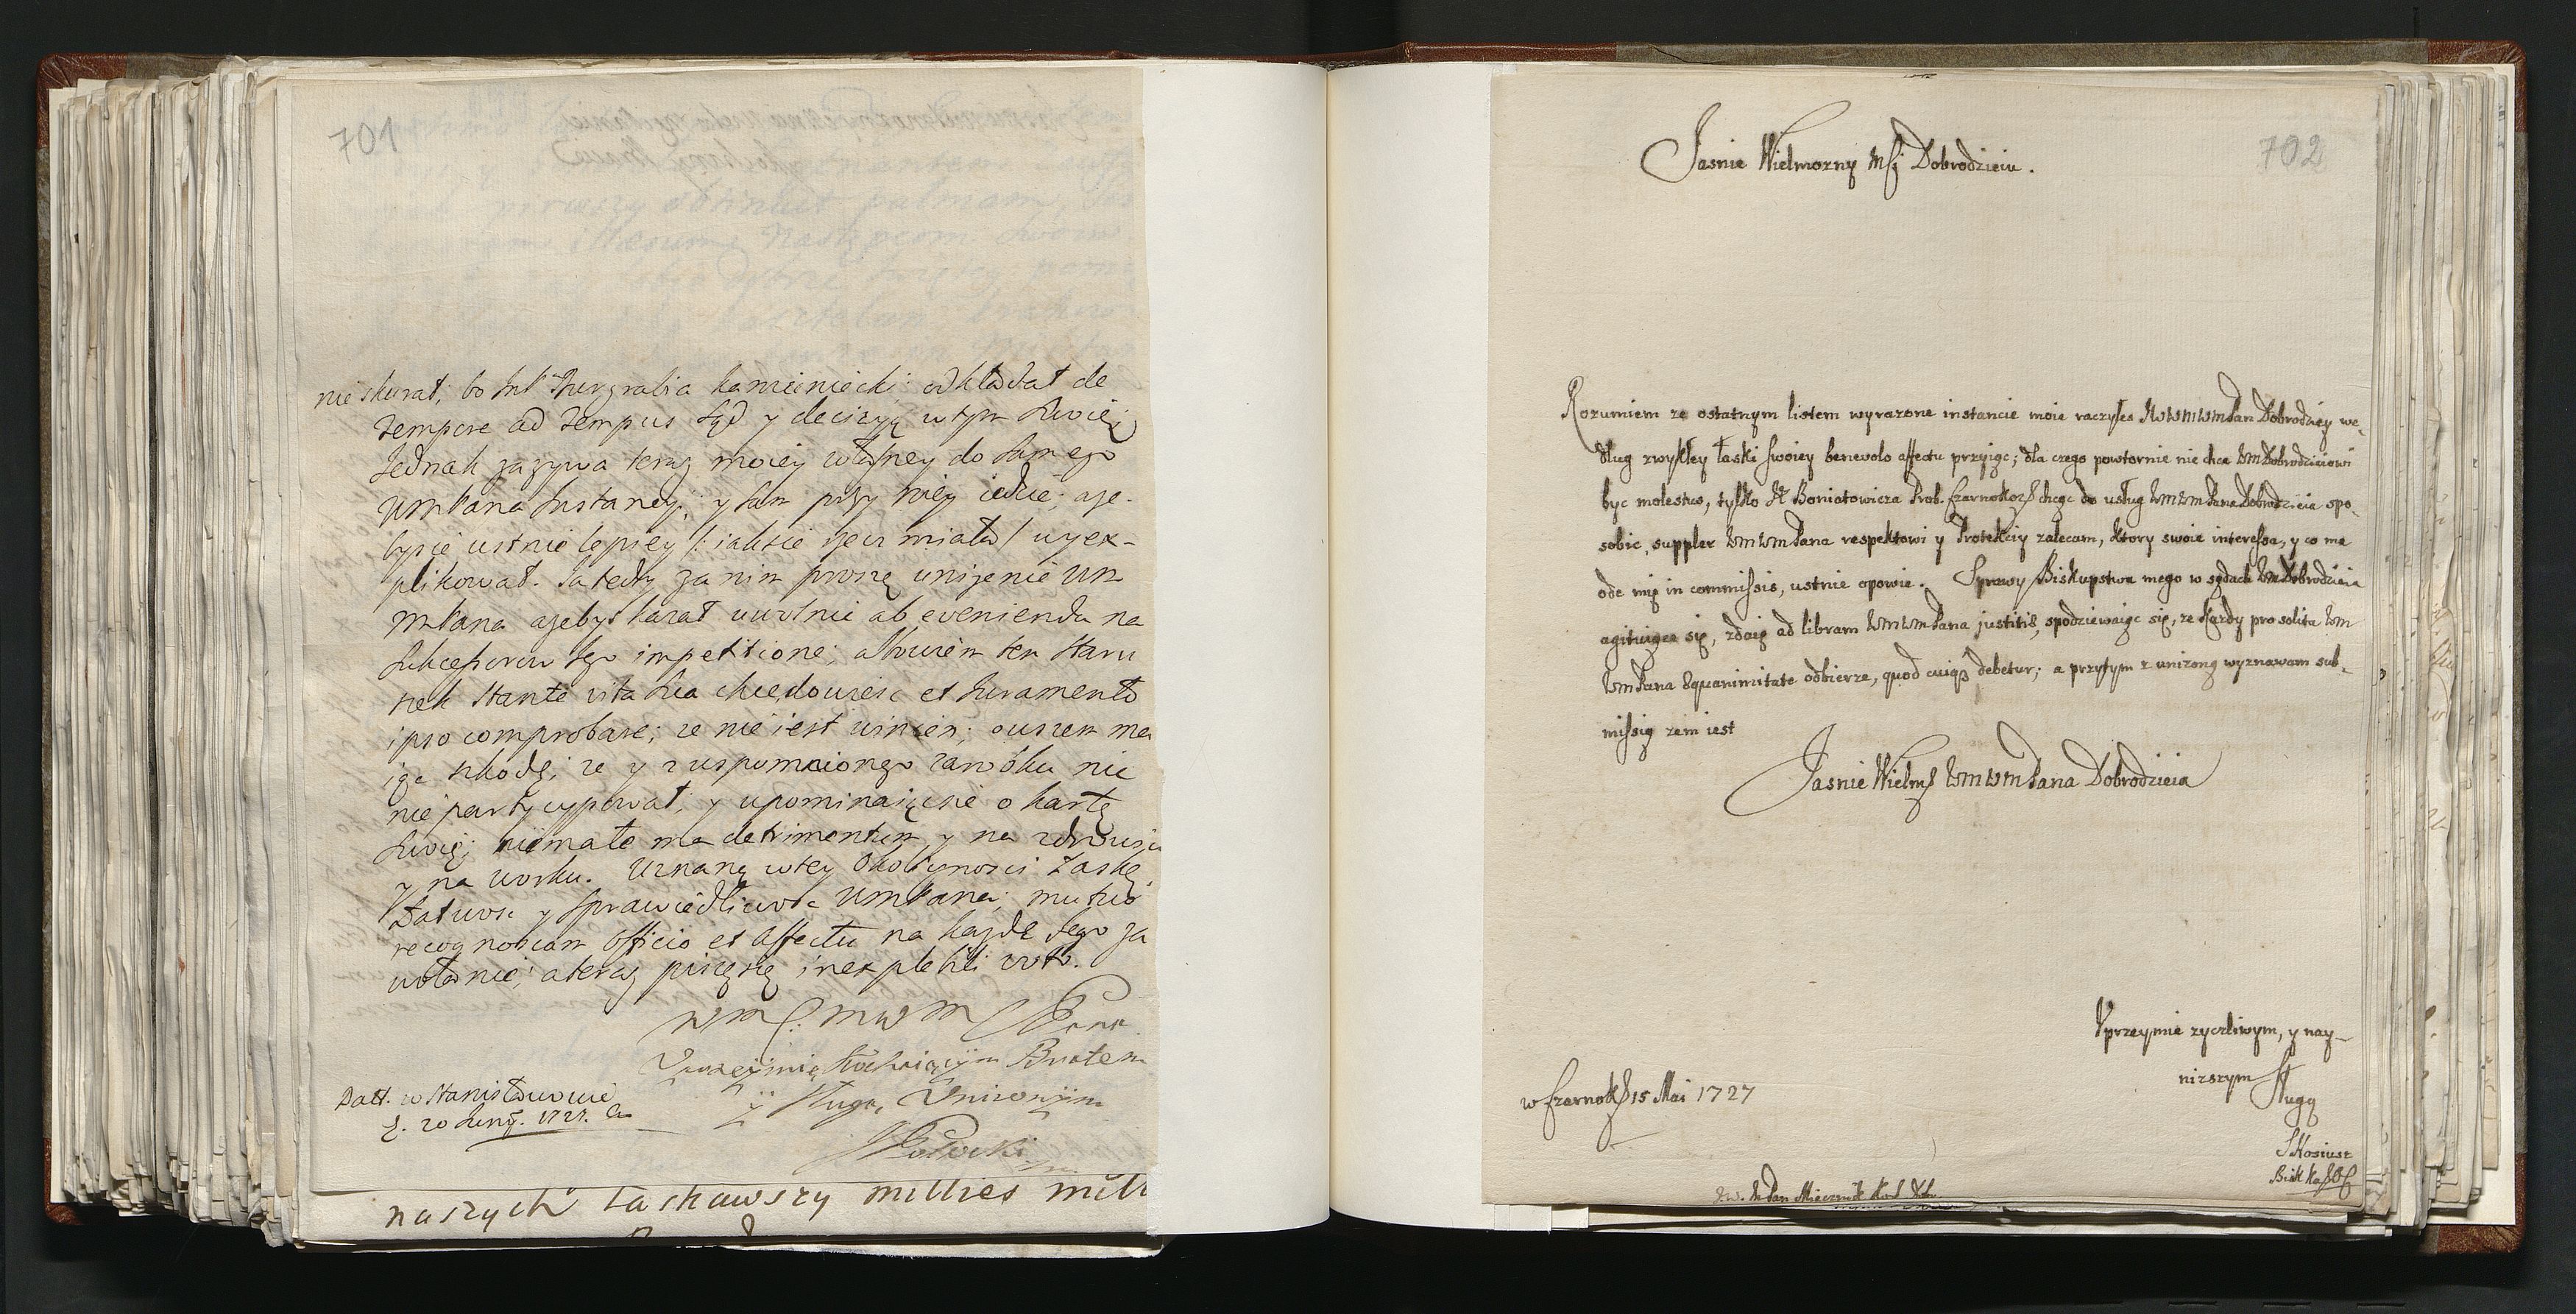 701
nie skurat, bo Jmć Burgrabia kamieniecki odkładał de
tempore ad tempus sąd y decizyą w tym swoię;
Jednak zazywa teraz moiey własney do samego
WmPana Instancyi; y sam przy niey iedzie; aze-
bysie ustnie lepiey /: iaksie rzecz miała / wyex-
plikował. Ja tedy za nim proszę unizenie Wm
MPana azebys kazał uwolnic ab evenienda na
Sukcessorow tego impetitione; albowiem ten Staru
szek stante vita sua chce dowiesc et Juramento
ipso comprobare; ze nie iest winien; owszem ma
iąc szkodę; ze y z wspomnionego zarobku nic
nie partycypował, y upominaiącsie o kartę
swoię; niemało ma detrimentum y na zdrowiu
y na worku. Uznaną w tey okolicznosci Łaskę
Łatwosc y sprawiedliwosc WmPana; mutuo
recognoscam officio et affectu na kazde Jego za
wołanie; a teraz piszęsię inexplebili voto.
Wm MWM Pana
Uprzeymie kochaiącym Bratem
y sługą Unizonym
Potocki
Datt. w Stanisławowie
d. 20 Juny. 1727.
naszych łaskawszy millies mill
702
Jasnie Wielmozny Msj Dobrodzieiu.
Rozumiem ze ostatnym listem wyrazone instancie moie raczyłes JWWMWmPan Dobrodziey we-
dług zwykłey łaski swoiey benevolo affectu przyiąc; dla czego powtornie nie chcę WmDobrodzieiowi
byc molestus, tylko X Boniatowicza Prob. Czarnokoz chcąc do usług WmWmPana Dobrodzieia spo-
sobic, supplex WmWmPana respektowi y Protekciy zalecam, ktory swoie interessa, y co ma
ode mię in commissis, ustnie opowie. Sprawy Biskupstwa mego w sądach WmDobrodzieia
agituiące się, zdaię ad libram WmWmPana justitiæ, spodziewaiąc się, ze kazdy pro solita Wm
WmPana æquanimitate odbierze, quod cuiq debetur; a przytym z unizoną wyznawam sub-
missią zem iest
Jasnie Wielm WmWmPana Dobrodzieia
Uprzeymie zyczliwym, y nay-
nizszym Sługą
w Czarnok 15 Mai 1727
SHosiusz
Bisk Ka
J.W. JPan Miecznik Kor